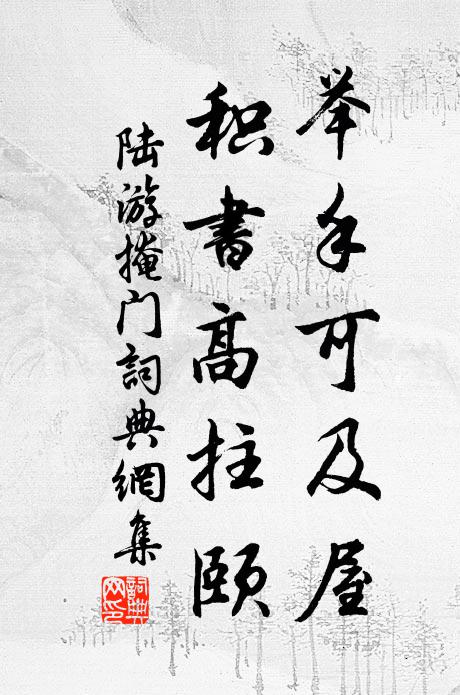 举手可及屋
积书高拄颐
陆游掩门詞典網集